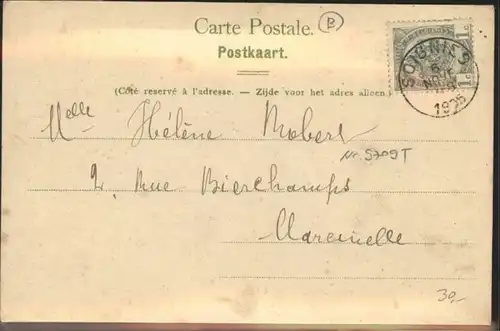 Carte Postale. B
Postkaart.
(Côté reservé à l'adresse. — Zijde voor het adres alleen.)
1 c 1 c
SOIGNIES
NOV
Melle Hélène Mabert
Nr. S709T
2, Rue Bierchamps
Marcinelle
30,-